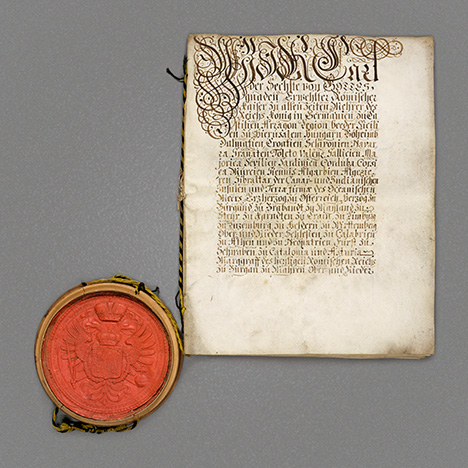 Wir Carl
der Sechste von Gottes
gnaden Erwehlter Römischer
Kaiser zu allen Zeiten Mehrer des
Reichs König in Germanien zu Ca
stilien Arragon Legion beeder Sicili
en zu Hierusalem Hungarn Böheimb
Dalmatien Croatien Sclavonien Navar
ra Granaten Toleto Valenz Gallicien Ma
jorica Sevilien Sardinien Corduba Corsi
ca Murcien Algarbien Algezie
ren Gibraltar der Canari und Indianischen
Insulen und Terra firma des Oceanischen
Meers Erzherzog zu Österreich Herzog zu
Burgund zu Braband zu Mayland zu
Steyr zu Cärnten zu Crain zu Limburg
zu Luzemburg zu Geldern zu Württemberg
Ober und Nieder Schlesien zu Calabrien
zu Athen und zu Neopatrien Fürst zu
Schwaben zu Catalonia und Asturia
Marggraf des Heyligen Römischen Reichs
zu Burgau zu Mähren Ober und Nieder